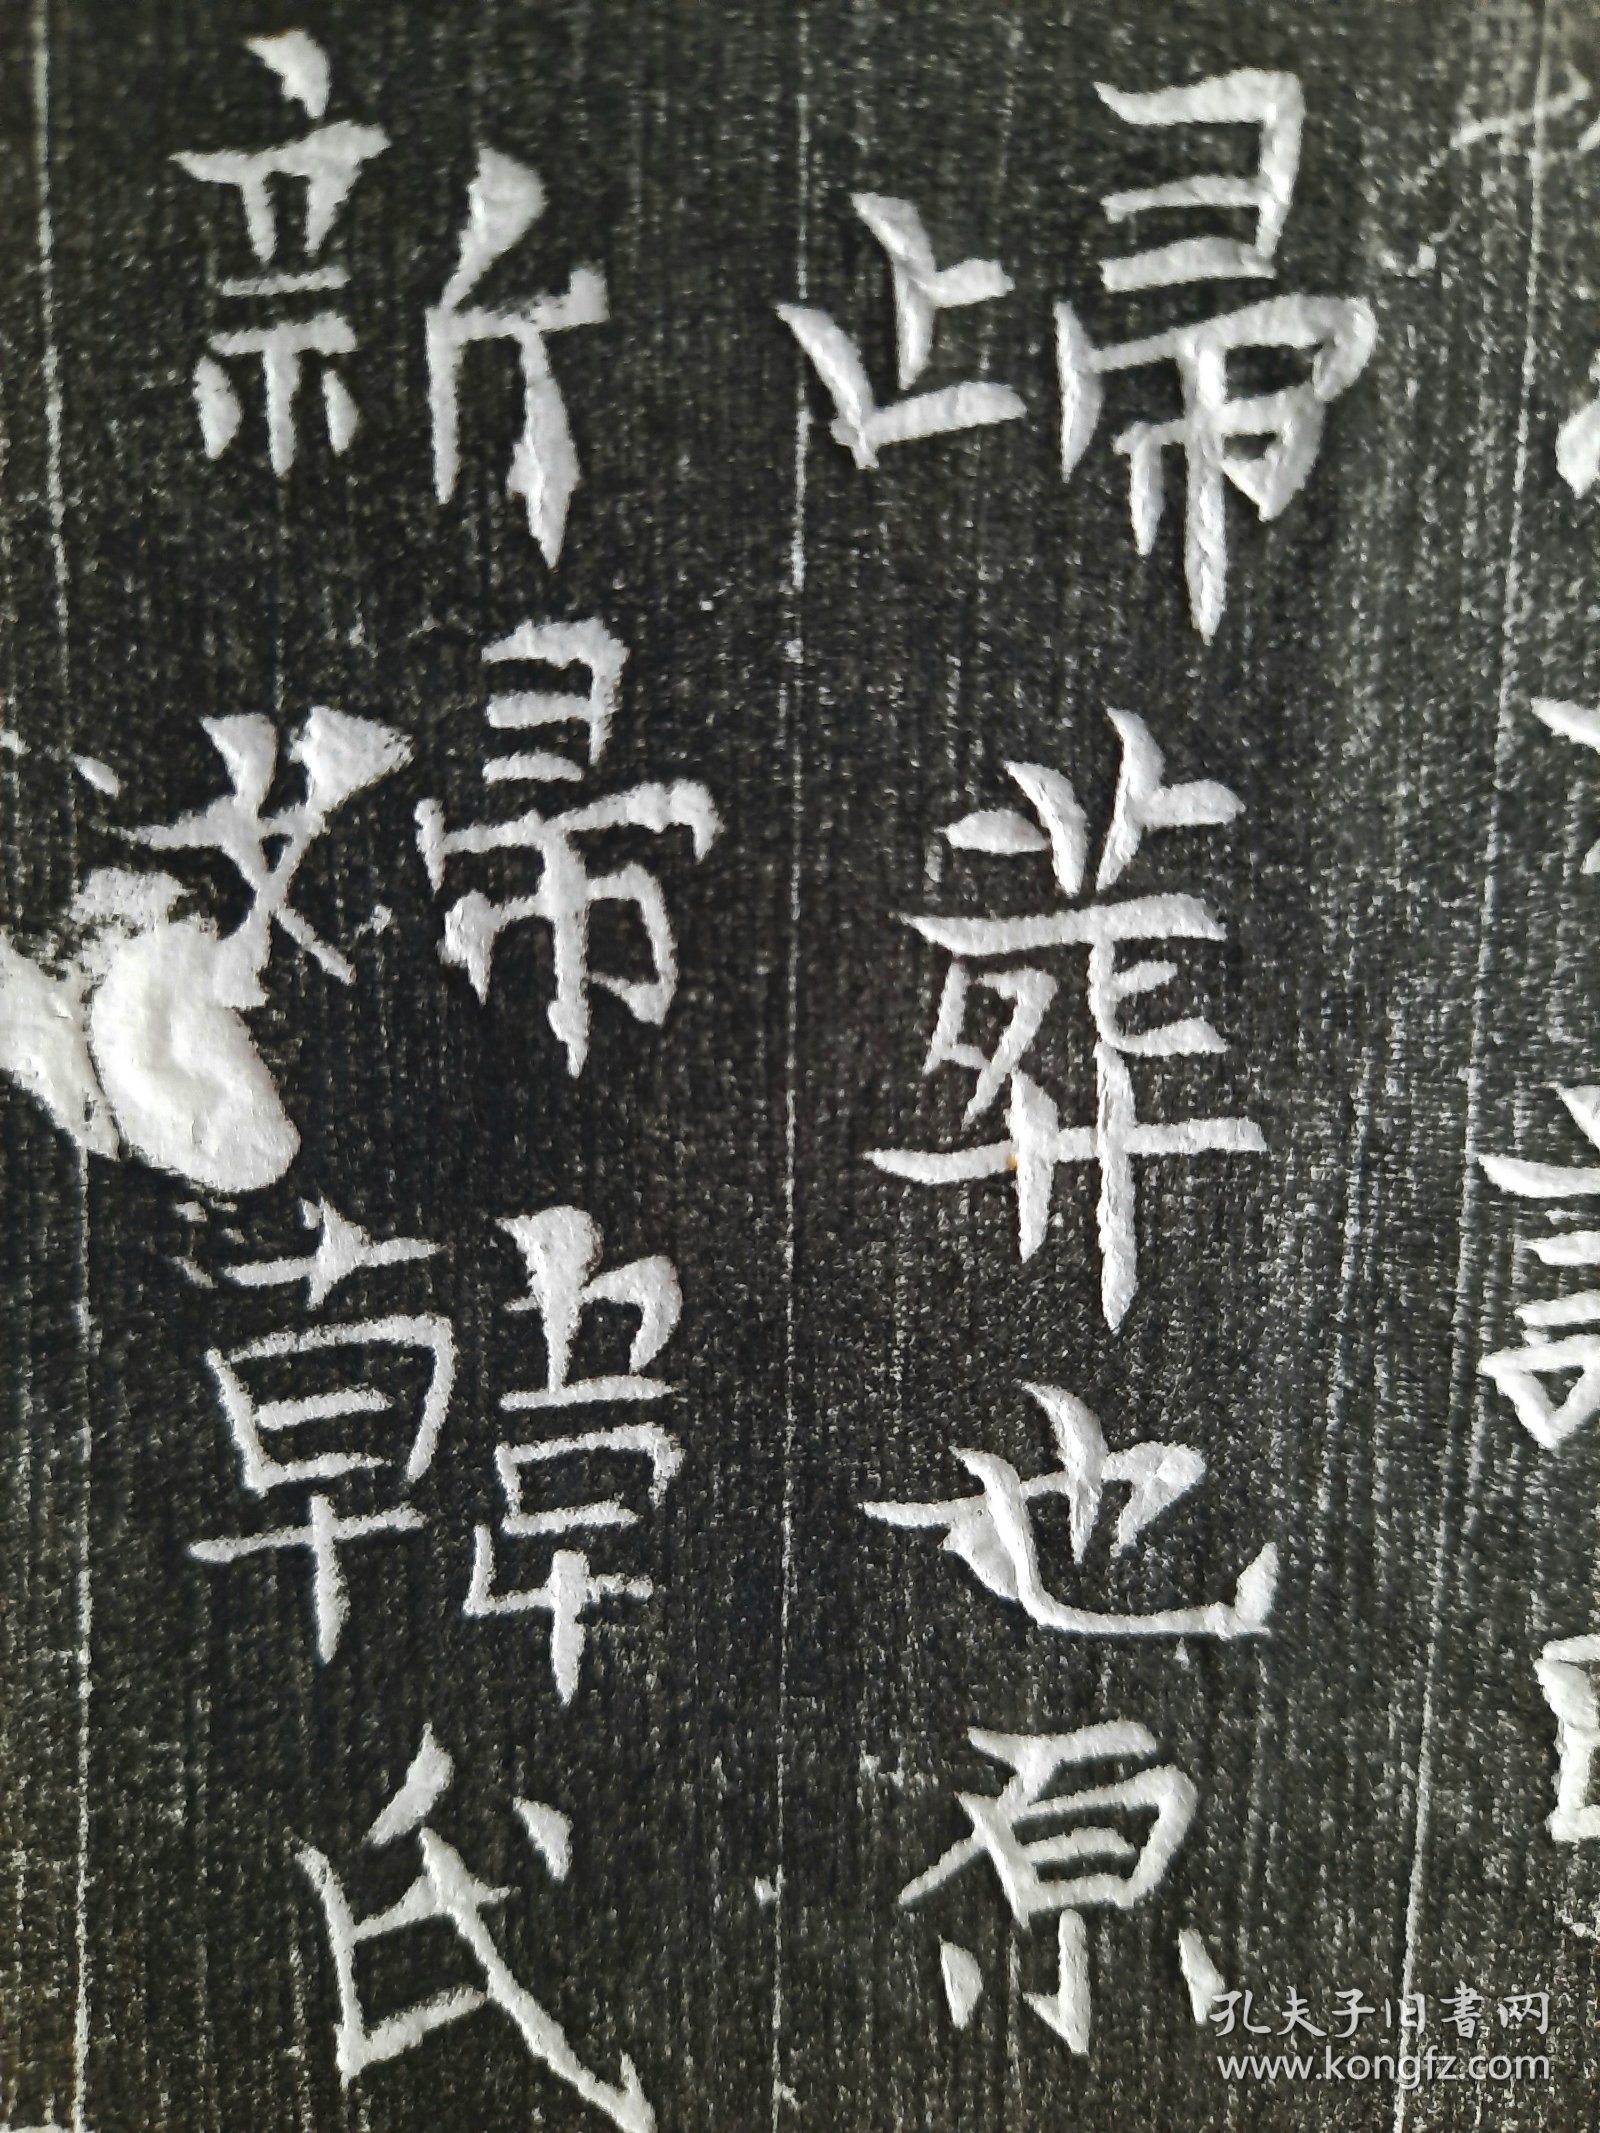 歸葬也原
新婦韓氏
孔夫子旧書网
www.kongfz.com